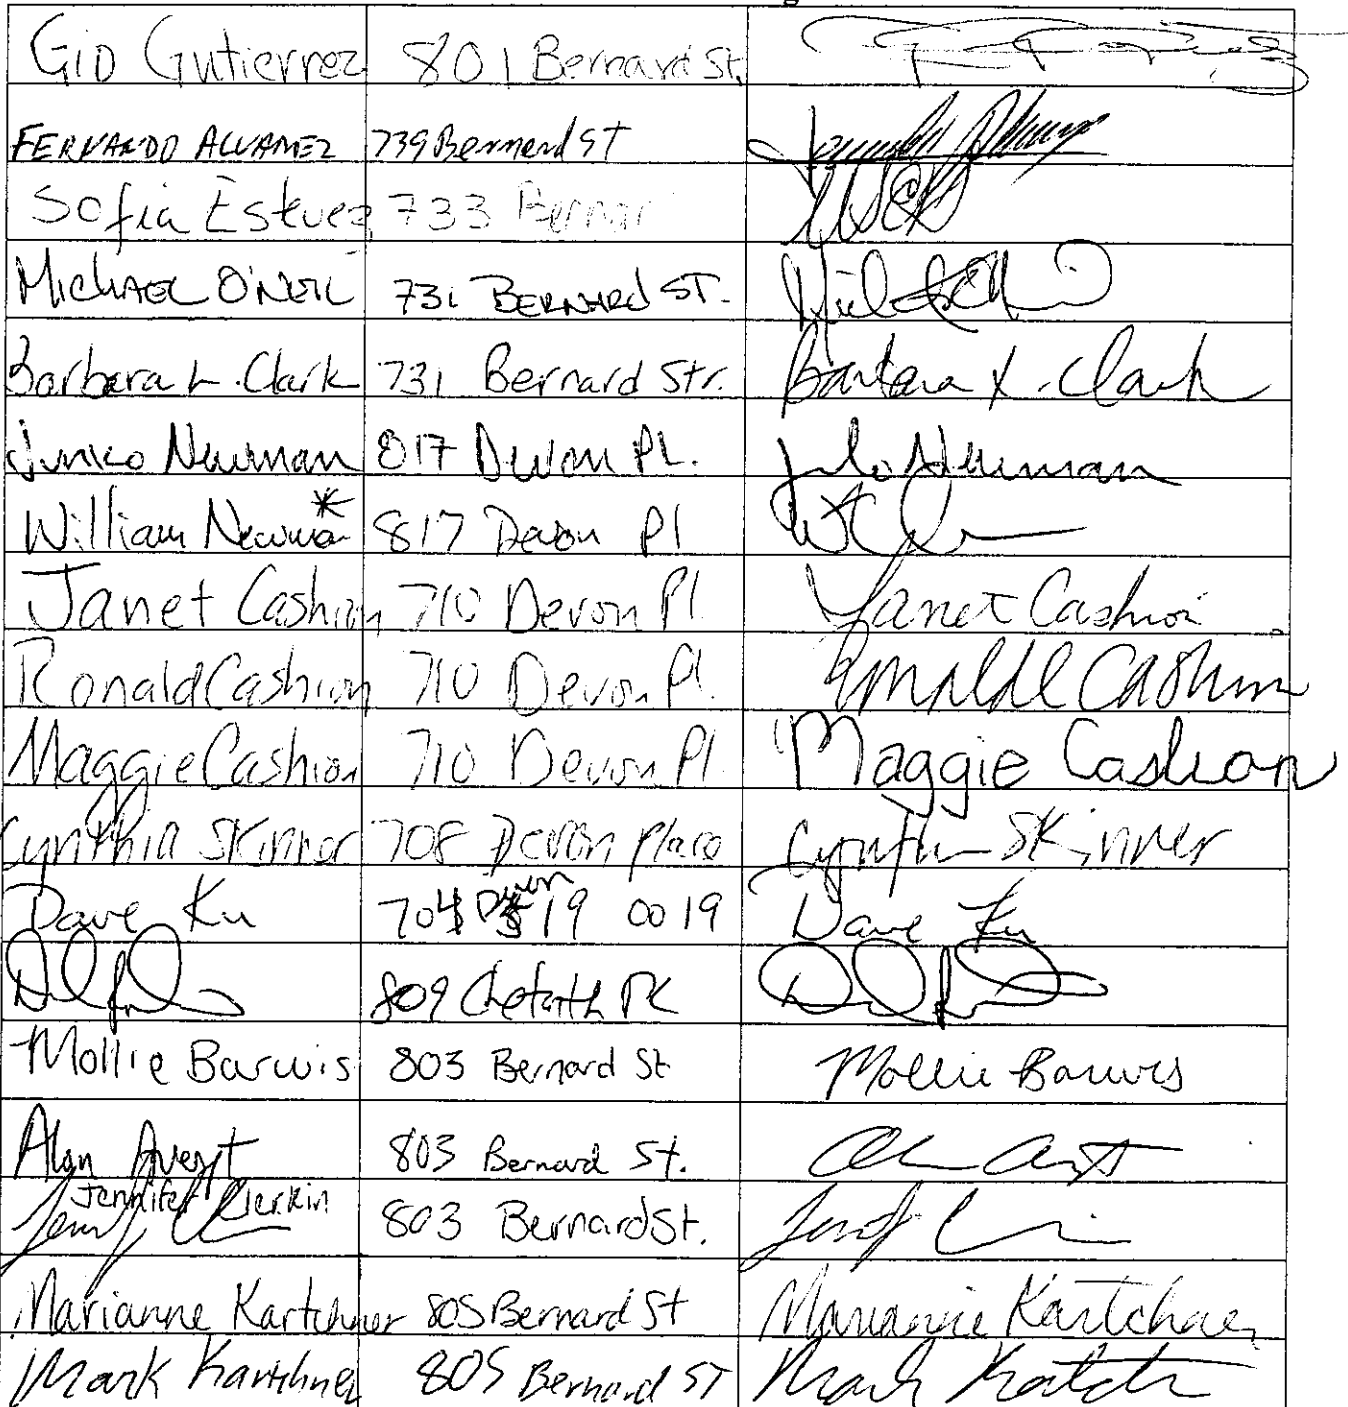 Gio Gutierrez 801 Bernard St.
FERNANDO ALVAREZ 739 Bernard ST
Sofia Estevez 733 Bernar
MICHAEL O'NEIL 731 BERNARD ST.
Barbara L. Clark 731 Bernard Str. Barbara L. Clark
Junko Newman 817 Devon PL. Newman
William Newman* 817 Devon Pl
Janet Cashion 710 Devon Pl. Janet Cashion
Ronald Cashion 710 Devon Pl. Cashion
Maggie Cashion 710 Devon Pl. Maggie Cashion
Cynthia Skinner 708 Devon Place Cynthia Skinner
Dave Ku 704 Devon 19 0019 Dave Ku
809
Mollie Barwis 803 Bernard St Mollie Barwis
Alan Avery 803 Bernard St.
Jennifer Clerkin 803 Bernard St.
Marianne Kartchner 805 Bernard St Marianne Kartchner
Mark Kartchner 805 Bernard ST Mark